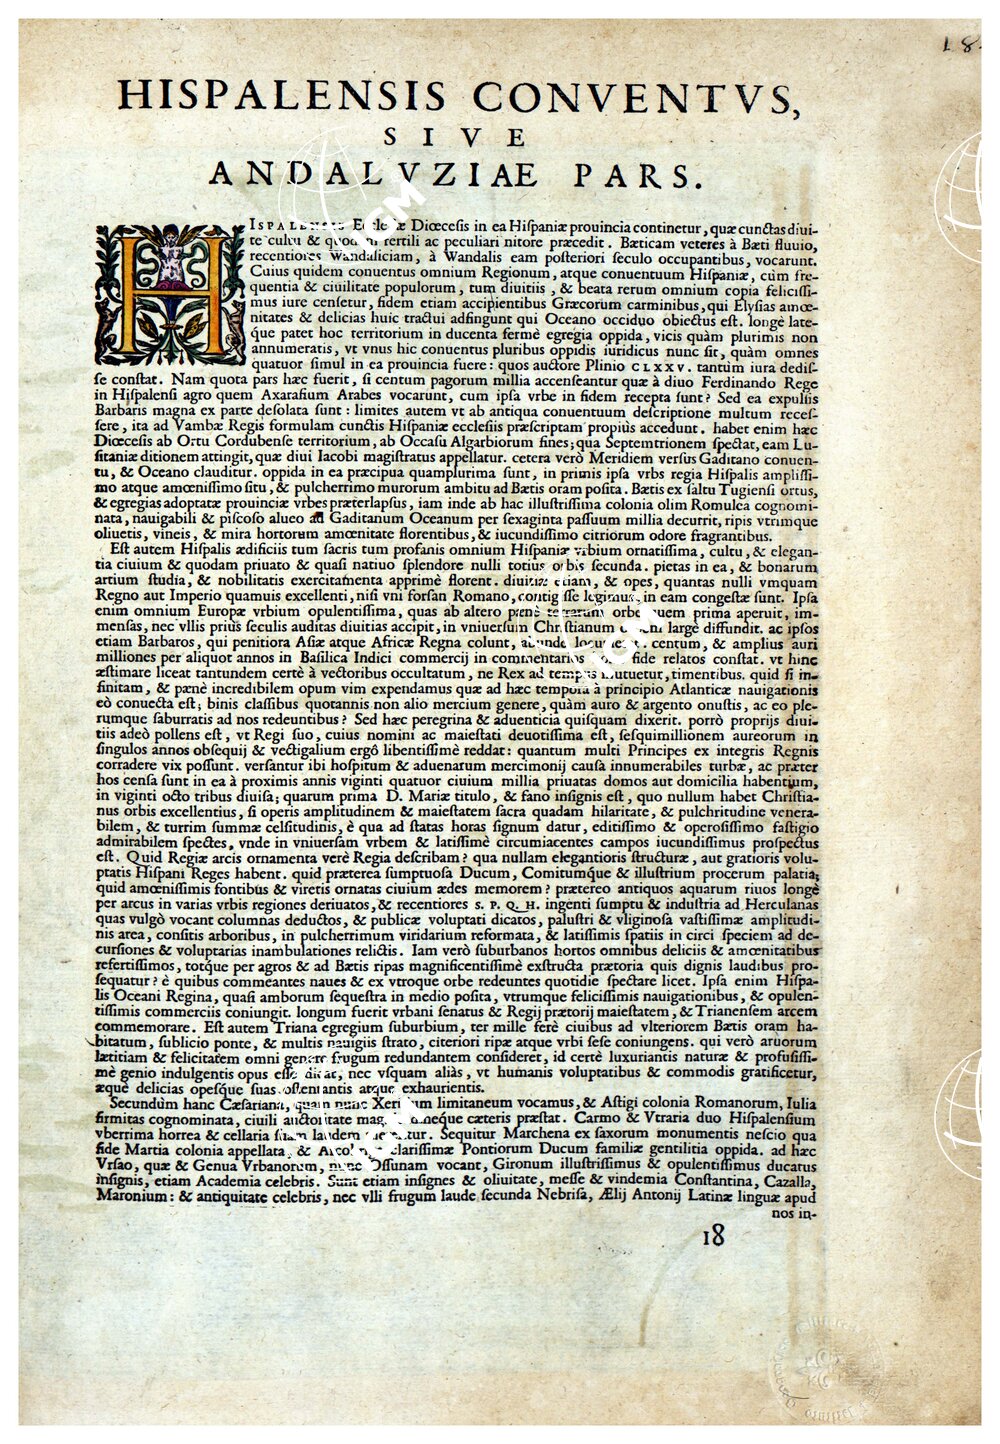 18.
HISPALENSIS CONVENTVS,
SIVE
ANDALVZIAE PARS.
HISPALENSIS Ecclesiæ Diœcesis in ea Hiſpaniæ prouincia continetur, quæ cunctas diui-
te cultu & quodam fertili ac peculiari nitore præcedit. Bæticam veteres à Bæti fluuio,
recentiores Wandaliciam, à Wandalis eam poſteriori ſeculo occupantibus, vocarunt.
Cuius quidem conuentus omnium Regionum, atque conuentuum Hiſpaniæ, cùm fre-
quentia & ciuilitate populorum, tum diuitiis, & beata rerum omnium copia feliciſſi-
mus iure cenſetur, fidem etiam accipientibus Græcorum carminibus, qui Elyſias amœ-
nitates & delicias huic tractui adfingunt qui Oceano occiduo obiectus eſt. longè late-
q́ue patet hoc territorium in ducenta fermè egregia oppida, vicis quàm plurimis non
annumeratis, vt vnus hic conuentus pluribus oppidis iuridicus nunc ſit, quàm omnes
quatuor ſimul in ea prouincia fuere: quos auctore Plinio CLXXV. tantùm iura dediſ-
ſe conſtat. Nam quota pars hæc fuerit, ſi centum pagorum millia accenſeantur quæ à diuo Ferdinando Rege
in Hiſpalenſi agro quem Axarafium Arabes vocarunt, cum ipſa vrbe in fidem recepta ſunt? Sed ea expulſis
Barbaris magna ex parte deſolata ſunt: limites autem vt ab antiqua conuentuum deſcriptione multum receſ-
ſere, ita ad Vambæ Regis formulam cunctis Hiſpaniæ eccleſiis præſcriptam propiùs accedunt. habet enim hæc
Diœceſis ab Ortu Cordubenſe territorium, ab Occaſu Algarbiorum fines; qua Septemtrionem ſpectat, eam Lu-
ſitaniæ ditionem attingit, quæ diui Iacobi magiſtratus appellatur. cetera verò Meridiem verſus Gaditano conuen-
tu, & Oceano clauditur. oppida in ea præcipua quamplurima ſunt, in primis ipſa vrbs regia Hiſpalis ampliſſi-
mo atque amœniſſimo ſitu, & pulcherrimo murorum ambitu ad Bætis oram poſita. Bætis ex ſaltu Tugienſi ortus,
& egregias adoptatæ prouinciæ vrbes præterlapſus, iam inde ab hac illuſtriſſima colonia olim Romulea cognomi-
nata, nauigabili & piſcoſo alueo ad Gaditanum Oceanum per ſexaginta paſſuum millia decurrit, ripis vtrimque
oliuetis, vineis, & mira hortorum amœnitate florentibus, & iucundiſſimo citriorum odore fragrantibus.
Eſt autem Hiſpalis ædificiis tum ſacris tum profanis omnium Hiſpaniæ vrbium ornatiſſima, cultu, & elegan-
tia ciuium & quodam priuato & quaſi natiuo ſplendore nulli totius orbis ſecunda. pietas in ea, & bonarum
artium ſtudia, & nobilitatis exercitamenta apprimè florent. diuitiæ etiam, & opes, quantas nulli vmquam
Regno aut Imperio quamuis excellenti, niſi vni forſan Romano, contigiſſe legimus, in eam congeſtæ ſunt. Ipſa
enim omnium Europæ vrbium opulentiſſima, quas ab altero penè terrarum orbe quem prima aperuit, im-
menſas, nec vllis priùs ſeculis auditas diuitias accipit, in vniuerſum Chriſtianum orbem largè diffundit. ac ipſos
etiam Barbaros, qui penitiora Aſiæ atque Africæ Regna colunt, abundè centum, & amplius auri
milliones per aliquot annos in Baſilica Indici commercij in commentarios fide relatos conſtat. vt hinc
æſtimare liceat tantundem certè à vectoribus occultatum, ne Rex ad tempus mutuetur, timentibus. quid ſi in-
finitam, & pænè incredibilem opum vim expendamus quæ ad hæc tempora à principio Atlanticæ nauigationis
eò conuecta eſt; binis claſſibus quotannis non alio mercium genere, quàm auro & argento onuſtis, ac eo ple-
rumque ſaburratis ad nos redeuntibus? Sed hæc peregrina & aduenticia quiſquam dixerit. porrò proprijs diui-
tiis adeò pollens eſt, vt Regi ſuo, cuius nomini ac maieſtati deuotiſſima eſt, ſeſquimillionem aureorum in
ſingulos annos obſequij & vectigalium ergô libentiſſimè reddat: quantum multi Principes ex integris Regnis
corradere vix poſſunt. verſantur ibi hoſpitum & aduenarum mercimonij cauſa innumerabiles turbæ, ac præter
hos cenſa ſunt in ea à proximis annis viginti quatuor ciuium millia priuatas domos aut domicilia habentium,
in viginti octo tribus diuiſa; quarum prima D. Mariæ titulo, & fano inſignis eſt, quo nullum habet Chriſtia-
nus orbis excellentius, ſi operis amplitudinem & maieſtatem ſacra quadam hilaritate, & pulchritudine venera-
bilem, & turrim ſummæ celſitudinis, è qua ad ſtatas horas ſignum datur, editiſſimo & operoſiſſimo faſtigio
admirabilem ſpectes, vnde in vniuerſam vrbem & latiſſimè circumiacentes campos iucundiſſimus proſpectus
eſt. Quid Regiæ arcis ornamenta verè Regia deſcribam? qua nullam elegantioris ſtructuræ, aut gratioris volu-
ptatis Hiſpani Reges habent. quid præterea ſumptuoſa Ducum, Comitumq́ue & illuſtrium procerum palatia;
quid amœniſſimis fontibus & viretis ornatas ciuium ædes memorem? prætereo antiquos aquarum riuos longè
per arcus in varias vrbis regiones deriuatos, & recentiores S. P. Q. H. ingenti ſumptu & induſtria ad Herculanas
quas vulgò vocant columnas deductos, & publicæ voluptati dicatos, paluſtri & vliginoſa vaſtiſſimæ amplitudi-
nis area, conſitis arboribus, in pulcherrimum viridarium reformata, & latiſſimis ſpatiis in circi ſpeciem ad de-
curſiones & voluptarias inambulationes relictis. Iam verò ſuburbanos hortos omnibus deliciis & amœnitatibus
refertiſſimos, totq́ue per agros & ad Bætis ripas magnificentiſſimè exſtructa prætoria quis dignis laudibus pro-
ſequatur? è quibus commeantes naues & ex vtroque orbe redeuntes quotidie ſpectare licet. Ipſa enim Hiſpa-
lis Oceani Regina, quaſi amborum ſequeſtra in medio poſita, vtrumque feliciſſimis nauigationibus, & opulen-
tiſſimis commerciis coniungit. longum fuerit vrbani ſenatus & Regij prætorij maieſtatem, & Trianenſem arcem
commemorare. Eſt autem Triana egregium ſuburbium, ter mille ferè ciuibus ad vlteriorem Bætis oram ha-
bitatum, ſublicio ponte, & multis nauigiis ſtrato, citeriori ripæ atque vrbi ſeſe coniungens. qui verò aruorum
lætitiam & felicitatem omni genere frugum redundantem conſideret, id certè luxuriantis naturæ & profuſiſſi-
mè genio indulgentis opus eſſe dicat, nec vſquam aliàs, vt humanis voluptatibus & commodis gratificetur,
æquè delicias opeſque ſuas oſtentantis atque exhaurientis.
Secundùm hanc Cæſariana, quam nunc Xericium limitaneum vocamus, & Aſtigi colonia Romanorum, Iulia
firmitas cognominata, ciuili auctoritate cæteris præſtat. Carmo & Vtraria duo Hiſpalenſium
vberrima horrea & cellaria ſuam laudem merentur. Sequitur Marchena ex ſaxorum monumentis neſcio qua
fide Martia colonia appellata, & clariſſimæ Pontiorum Ducum familiæ gentilitia oppida. ad hæc
Vrſao, quæ & Genua Vrbanorum, nunc Oſſunam vocant, Gironum illuſtriſſimus & opulentiſſimus ducatus
inſignis, etiam Academia celebris. Sunt etiam inſignes & oliuitate, meſſe & vindemia Conſtantina, Cazalla,
Maronium: & antiquitate celebris, nec vlli frugum laude ſecunda Nebriſa, Ælij Antonij Latinæ linguæ apud
nos in-
18